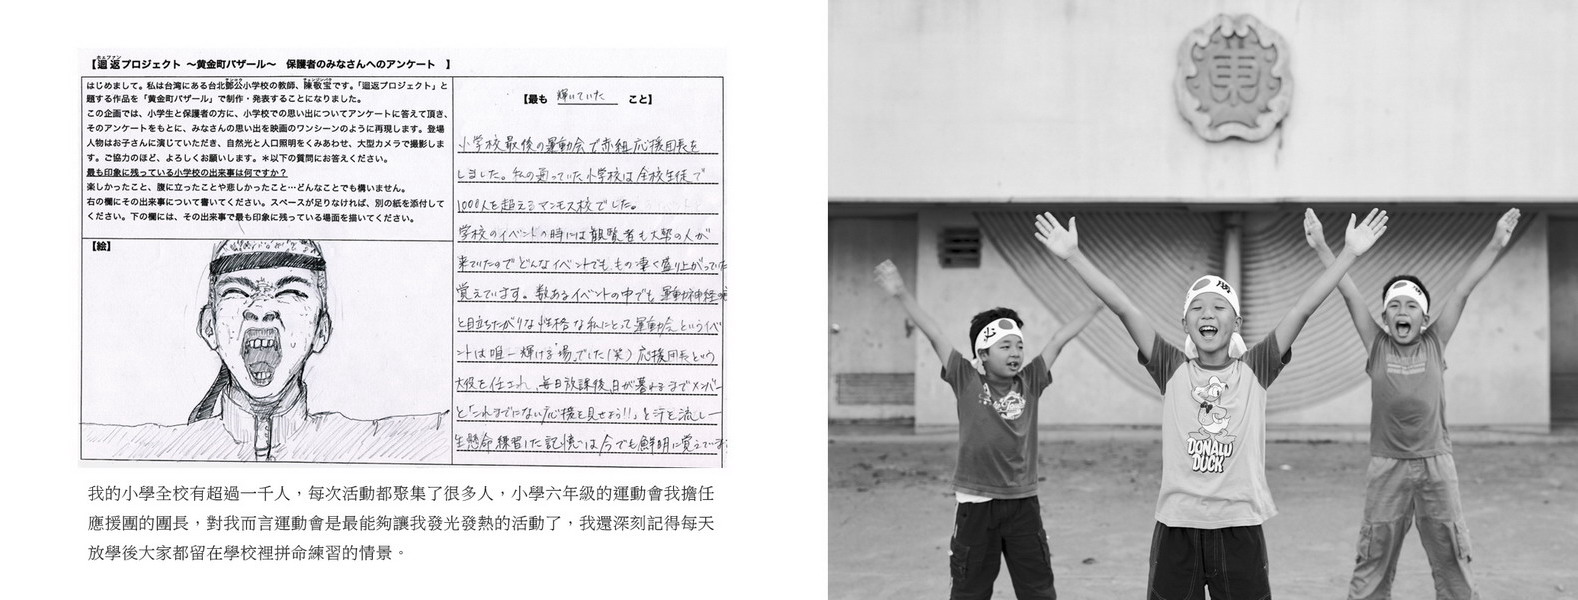 【迴返プロジェクト ～黄金町バザール～ 保護者のみなさんへのアンケート 】
はじめまして。私は台湾にある台北鄧公小学校の教師、陳敬宝です。「迴返プロジェクト」と
題する作品を「黄金町バザール」で制作・発表することになりました。
この企画では、小学生と保護者の方に、小学校での思い出についてアンケートに答えて頂き、
そのアンケートをもとに、みなさんの思い出を映画のワンシーンのように再現します。登場
人物はお子さんに演じていただき、自然光と人口照明をくみあわせ、大型カメラで撮影しま
す。ご協力のほど、よろしくお願いします。＊以下の質問にお答えください。
最も印象に残っている小学校の出来事は何ですか？
楽しかったこと、腹に立ったことや悲しかったこと…どんなことでも構いません。
右の欄にその出来事について書いてください。スペースが足りなければ、別の紙を添付して
ください。下の欄には、その出来事で最も印象に残っている場面を描いてください。
【絵】
【最も 輝いていた こと】
小学校最後の運動会で赤組応援団長を
しました。私の通っていた小学校は全校生徒で
1000人を超えるマンモス校でした。
学校のイベントの時には観覧者も大勢の人が
来ていたのでどんなイベントでももの凄く盛り上がっていた
覚えています。数あるイベントの中でも運動神経
と目立ちたがりな性格な私にとって運動会というイベ
ントは唯一輝ける場でした(笑) 応援団長という
大役を任され、毎日放課後、日が暮れるまでメンバー
と「これまでにない応援を見せよう!!」と汗を流し一
生懸命練習した記憶は今でも鮮明に覚えていま
我的小學全校有超過一千人，每次活動都聚集了很多人，小學六年級的運動會我擔任
應援團的團長，對我而言運動會是最能夠讓我發光發熱的活動了，我還深刻記得每天
放學後大家都留在學校裡拼命練習的情景。
必
勝
DONALD
DUCK